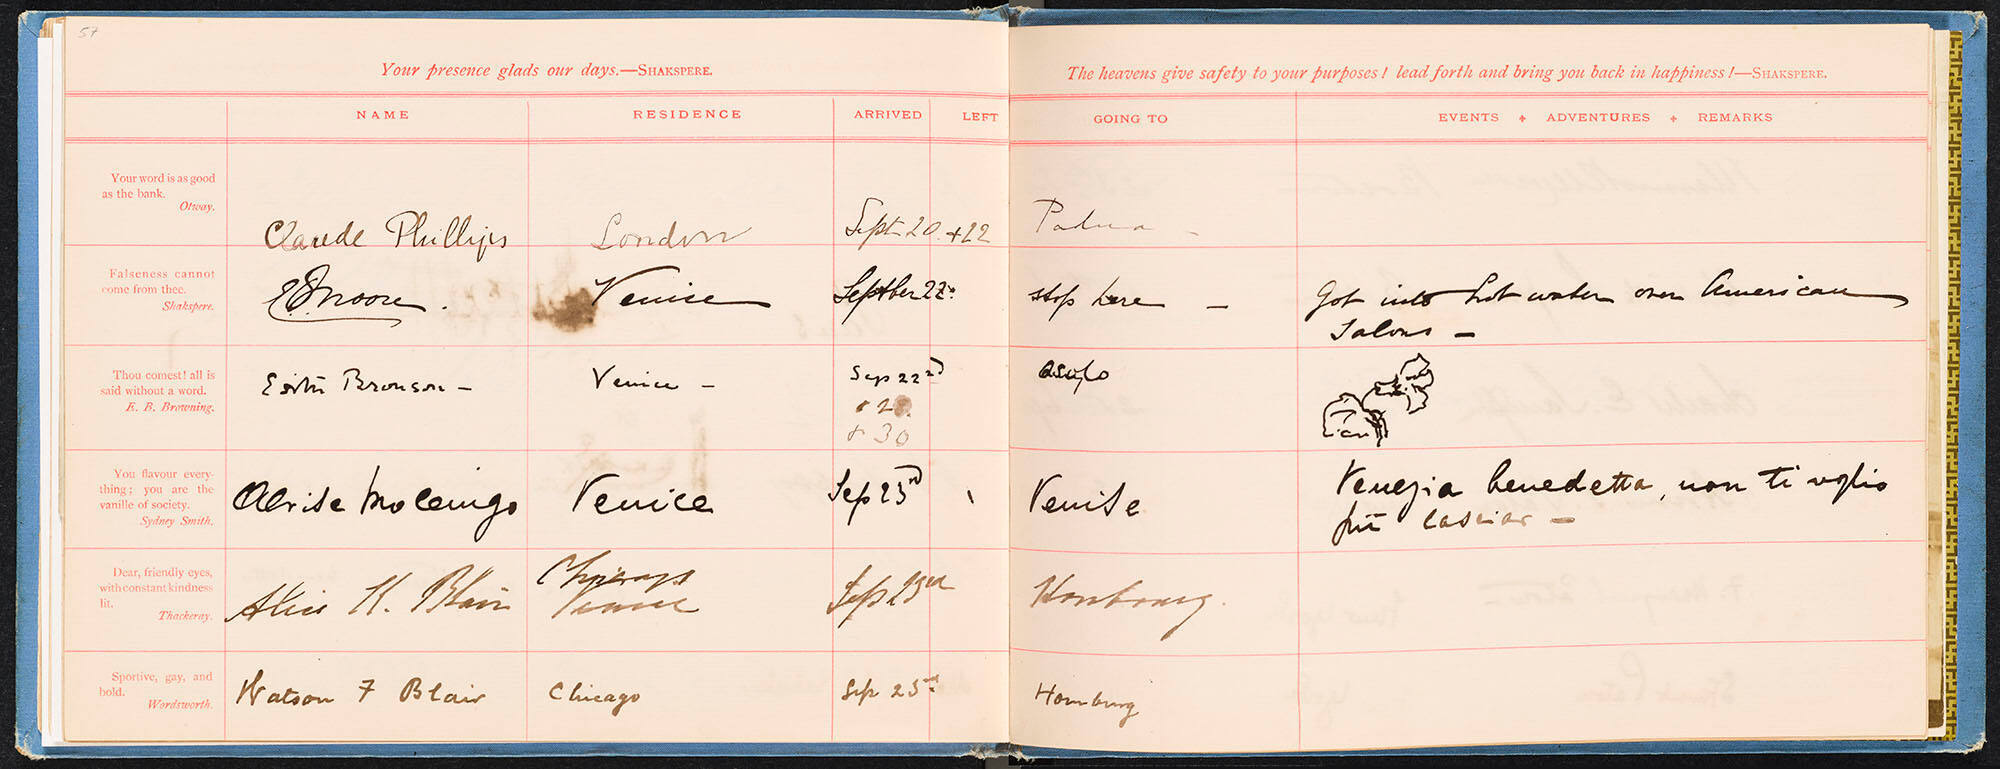 57
Your presence glads our days.—SHAKSPERE.
The heavens give safety to your purposes! lead forth and bring you back in happiness!—SHAKSPERE.
NAME RESIDENCE ARRIVED LEFT GOING TO EVENTS ✦ ADVENTURES ✦ REMARKS
Your word is as good
as the bank.
Otway.
Claude Phillips London Sept 20. +22 Padua –
Falseness cannot
come from thee.
Shakspere.
Moore. Venice Septber 22. stop here – Got into hot water over American
Salons –
Thou comest! all is
said without a word.
E. B. Browning.
Edith Bronson – Venice – Sep 22nd asolo
+ 30
You flavour every-
thing; you are the
vanille of society.
Sydney Smith.
Alvise Mocenigo Venice Sep 23rd Venise Venezia benedetta, non ti voglio
più lasciar –
Dear, friendly eyes,
with constant kindness
lit.
Thackeray.
Chicago
Alice K. Blair Venice Sep 23rd Hombourg.
Sportive, gay, and
bold.
Wordsworth.
Watson F Blair Chicago Sep 23rd Homburg